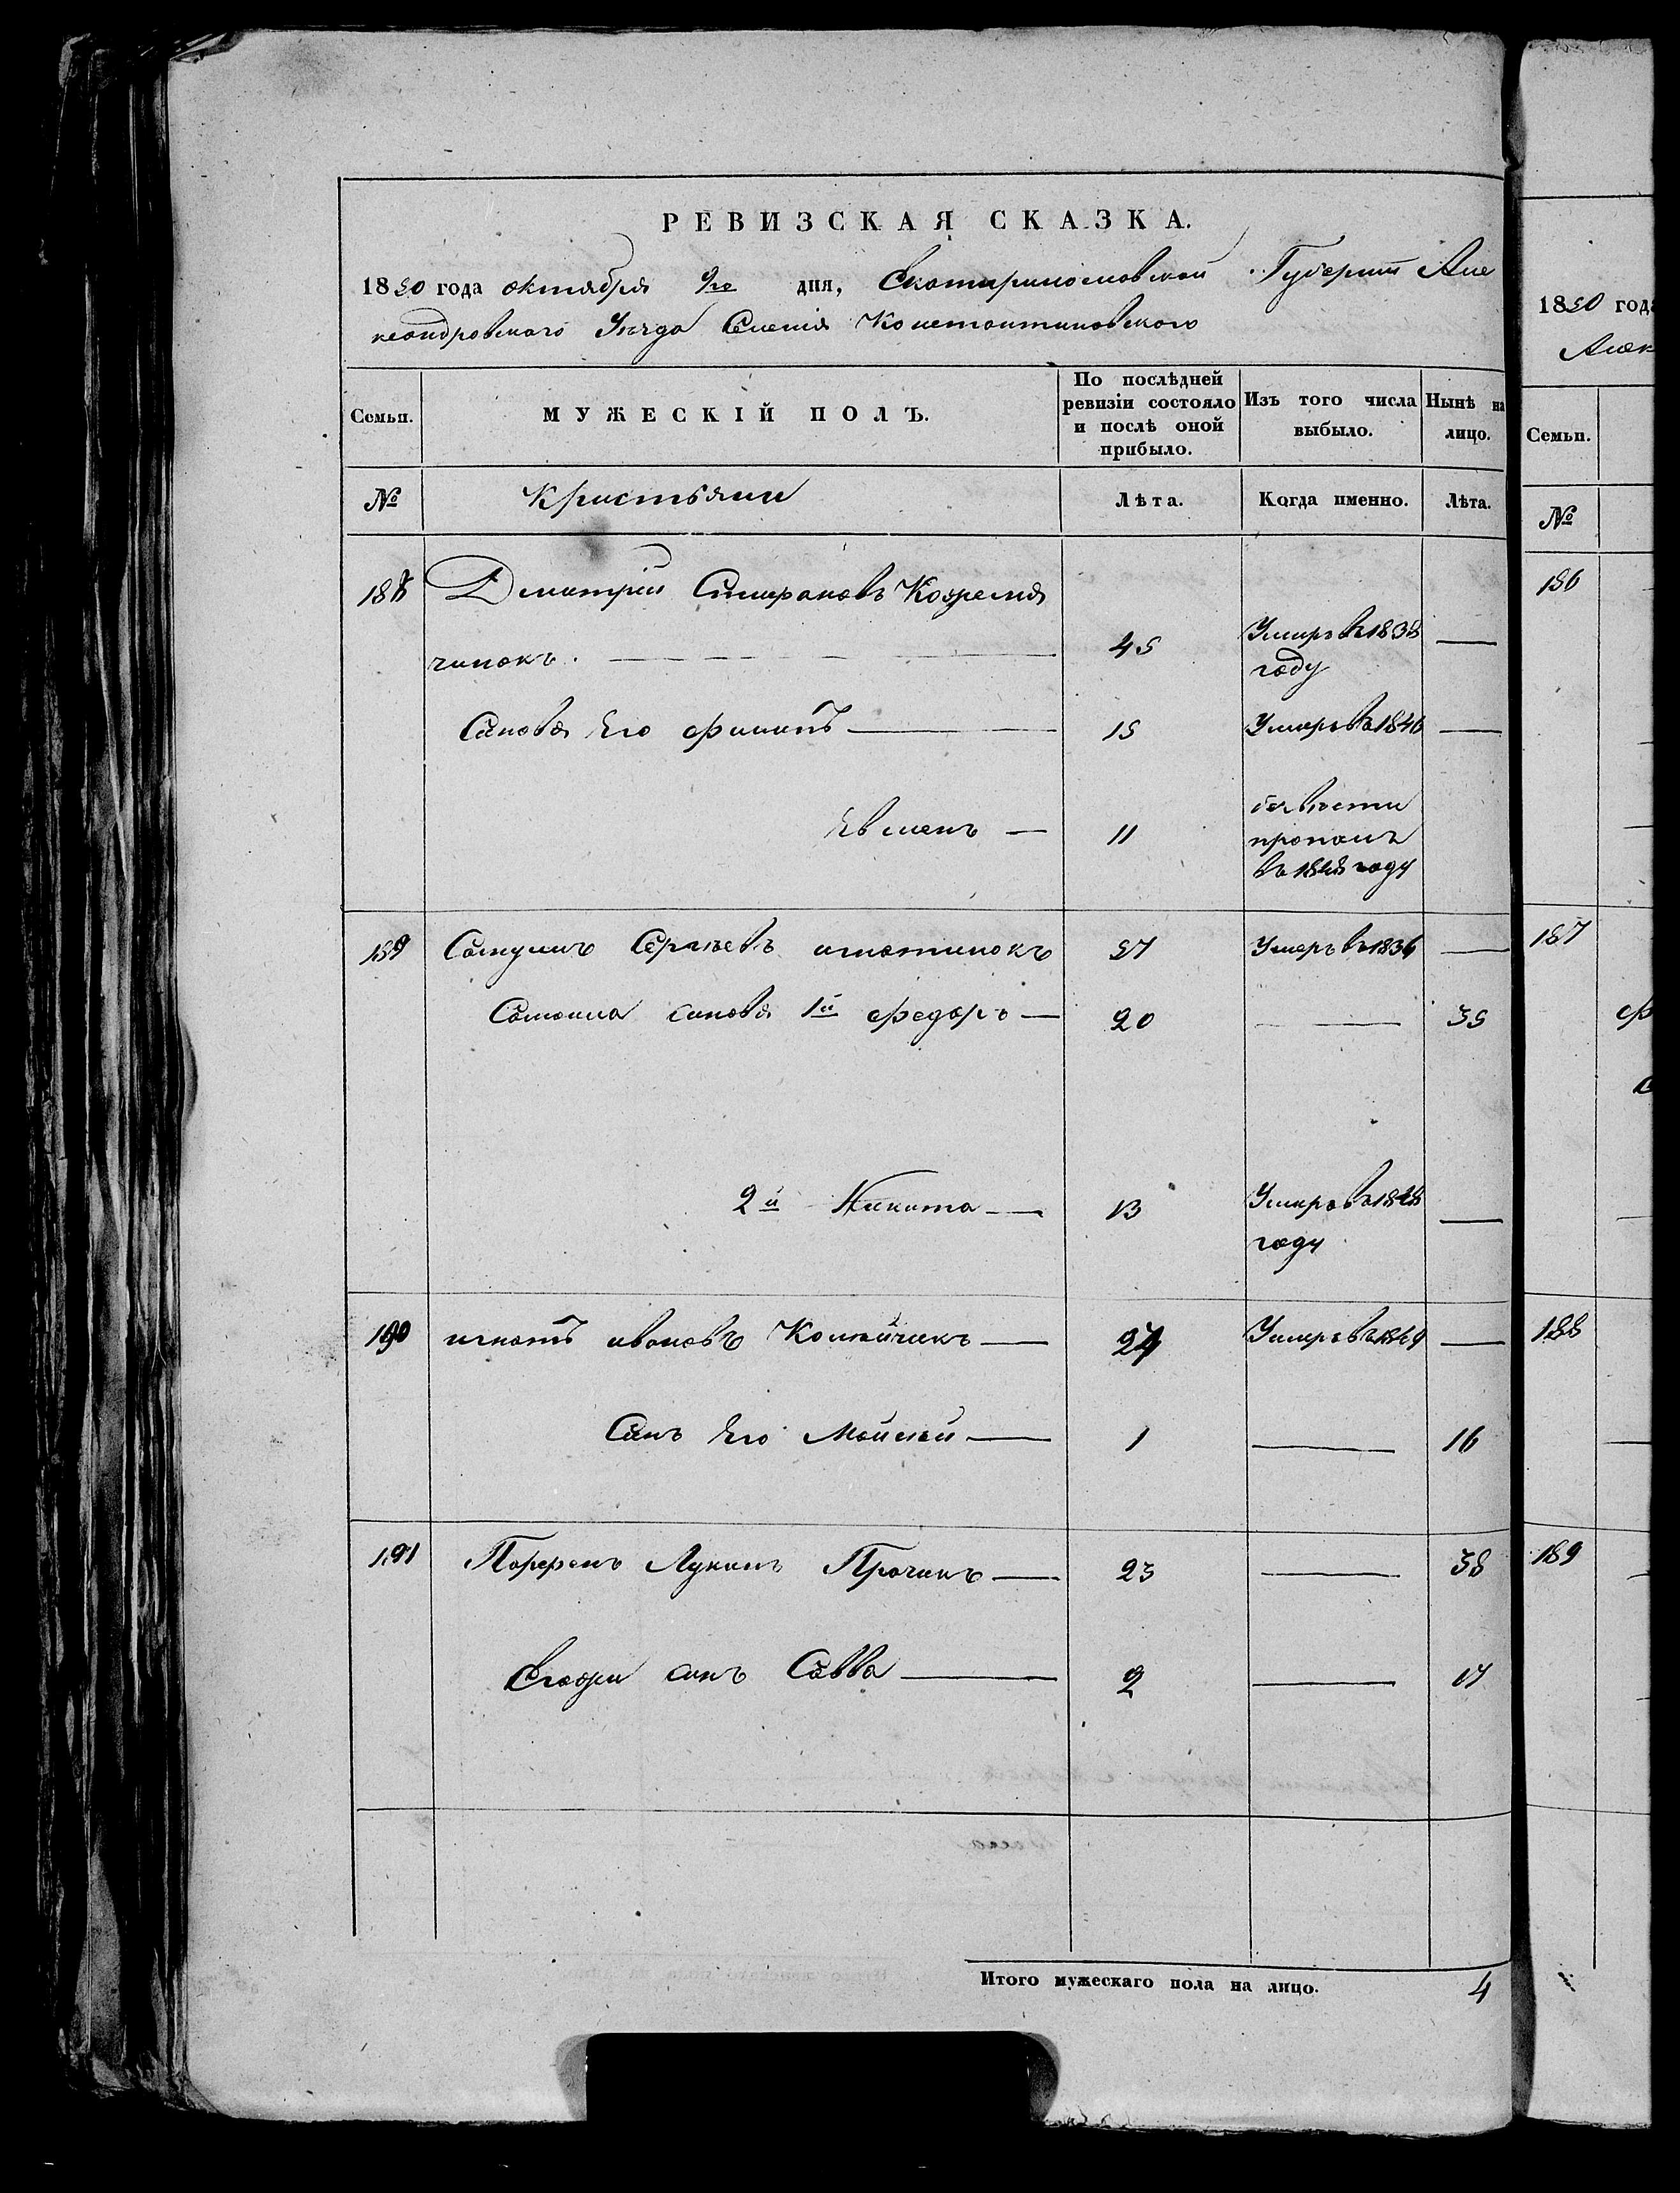 РЕВИЗСКАЯ СКАЗКА.
1850 года октября 9го дня, Екатеринославской Губернии Але
ксандровского Уезда Селения Константиновского
Семьи.
МУЖЕСКІЙ ПОЛЪ.
По послѣдней ревизіи состояло и послѣ оной прибыло.
Изъ того числа выбыло.
Нынѣ на лицо.
№
Кристьяни
Лѣта.
Когда именно.
Лѣта.
188 Дмитрий
45 Умеръ в 1838
году
Синовя Его филипъ 15 Умеръ в 1846
Евменъ 11 безвести
пропалъ
в 1848 году
189 Самуилъ Сергѣевъ игнатинокъ 57 Умеръ в 1836
Самоила синовя 1й федоръ 20 35
2й Никита 13 Умеръ в 1848
году
190 игнатъ ивановъ 24 Умеръ в 1849
Синъ Его Мойсѣй 1 16
191 Парфенъ Лукинъ Прочикъ 23 38
синъ Савва 2 17
Итого мужескаго пола на лицо. 4
1850 года
Алек
Семьи.
№
186
187
188
189